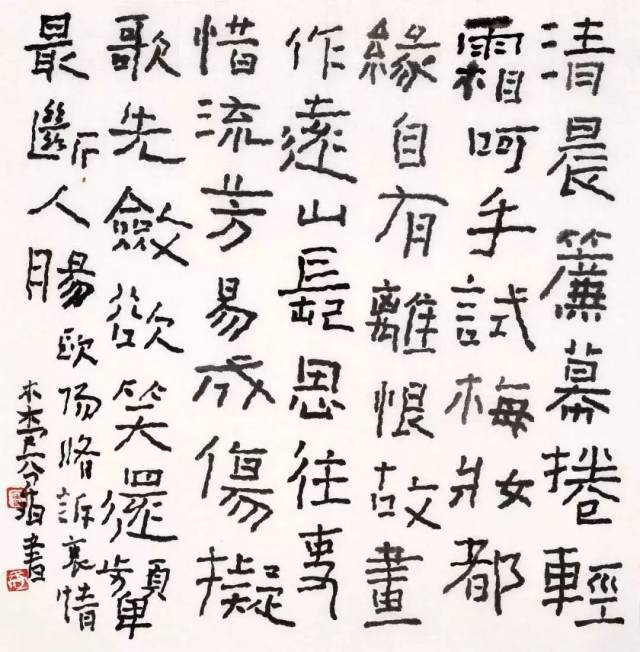 清晨簾幕捲輕
霜呵手試梅妝都
緣自有離恨故畫
作遠山長思往事
惜流芳易成傷擬
歌先斂欲笑還顰
最斷人腸 歐陽脩訴衷情
書